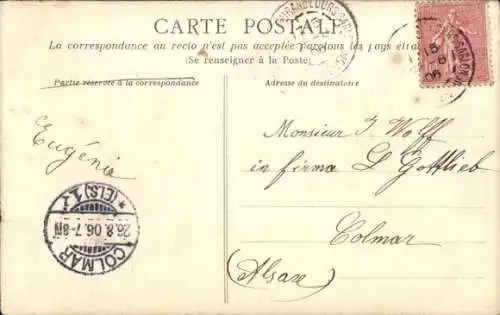 CARTE POSTALE
La correspondance au recto n'est pas acceptée par tous les pays étra
(Se renseigner à la Poste)
Partie réservée à la correspondance
Adresse du destinataire
Eugénie
Monsieur J Wolff
in firma L Gottlieb
Colmar
(Alsace)
COLMAR
26.8.06.7-8N
*(ELS)1.*